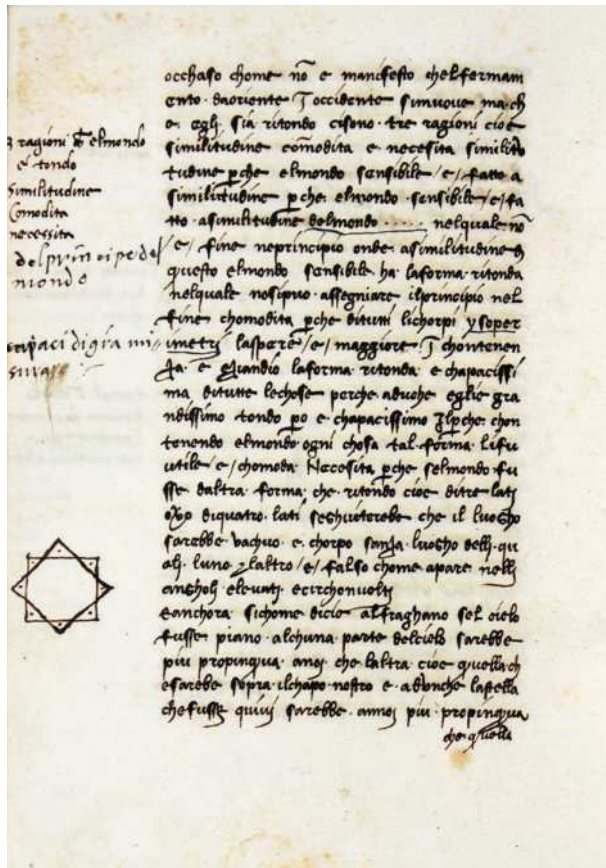 occhaso chome nō e manifesto chel fermam
ento daoriente ī occidente simuove ma ch
e egli sia ritondo cisono tre ragioni cioe
similitudine comodita e necesita similito
tudine pche elmondo sensibile /e/ fatto a
similitudine pche elmondo sensibile /e/ fa
tto asimilitudine delmondo ...... nelquale nō
/e/ fine neprincipio onde asimilitudine
questo elmondo sensibile ha laforma ritonda
nelquale nosipuo assegniare ilprincipio nel
fine chomodita pche ditutti lichorpi ysoper
imetri laspere /e/ maggiore ī chontenen
za e eziandio laforma ritonda e chapacissi
ma ditutte lechose perche advche eglie gra
ndissimo tondo po e chapacissimo chon
tenendo elmondo ogni chosa tal forma lifu
utile /e/ chomoda Necesita pche selmondo fu
sse daltra forma che ritondo cioe ditre lati
oxo diquatro lati seghuiterebe che il luogho
sarebbe vachuo e chorpo sanza luogho delli qu
ali luno laltro /e/ falso chome apare nelli
anghuli elevati ecirchonvolti
eanchora sichome dicie alfraghano sel cielo
fusse piano alchuna parte delcielo sarebbe
piu propinqua anoi che laltra cioe quella ch
esarebe sopra ilchapo nostro e advnche lastella
chefusse quivi sarebbe annoi piu propinqua
che quelli
3 ragioni elmondo
e tondo
similitudine
Comodita
necessita
del principe del
mondo
capaci di gra mi
sura